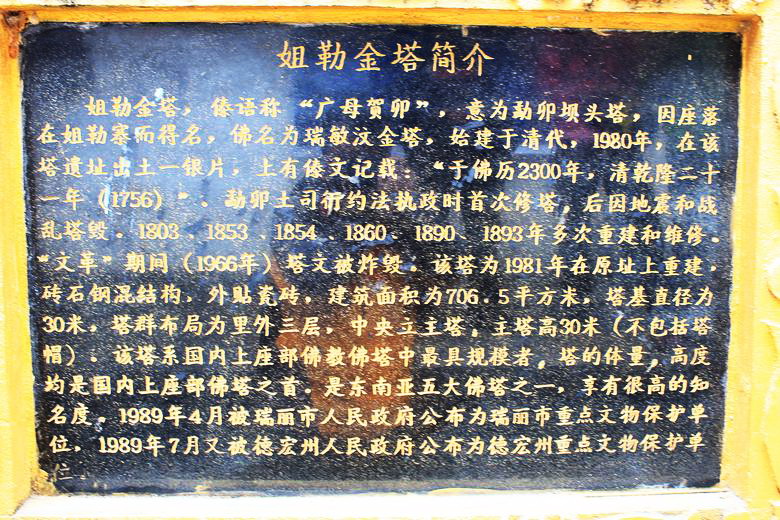 姐勒金塔简介
姐勒金塔，傣语称“广母贺卯”，意为勐卯坝头塔，因座落
在姐勒寨而得名，佛名为瑞敏汶金塔，始建于清代，1980年，在该
塔遗址出土一银片，上有傣文记载：“于佛历2300年，清乾隆二十
一年（1756）”、勐卯土司衎约法执政时首次修塔，后因地震和战
乱塔毁。1803、1853、1854、1860、1890、1893年多次重建和维修。
“文革”期间（1966年）塔又被炸毁。该塔为1981年在原址上重建，
砖石钢混结构，外贴瓷砖，建筑面积为706.5平方米，塔基直径为
30米，塔群布局为里外三层，中央立主塔，主塔高30米（不包括塔
帽）。该塔系国内上座部佛教佛塔中最具规模者，塔的体量，高度
均是国内上座部佛塔之首。是东南亚五大佛塔之一，享有很高的知
名度。1989年4月被瑞丽市人民政府公布为瑞丽市重点文物保护单
位，1989年7月又被德宏州人民政府公布为德宏州重点文物保护单